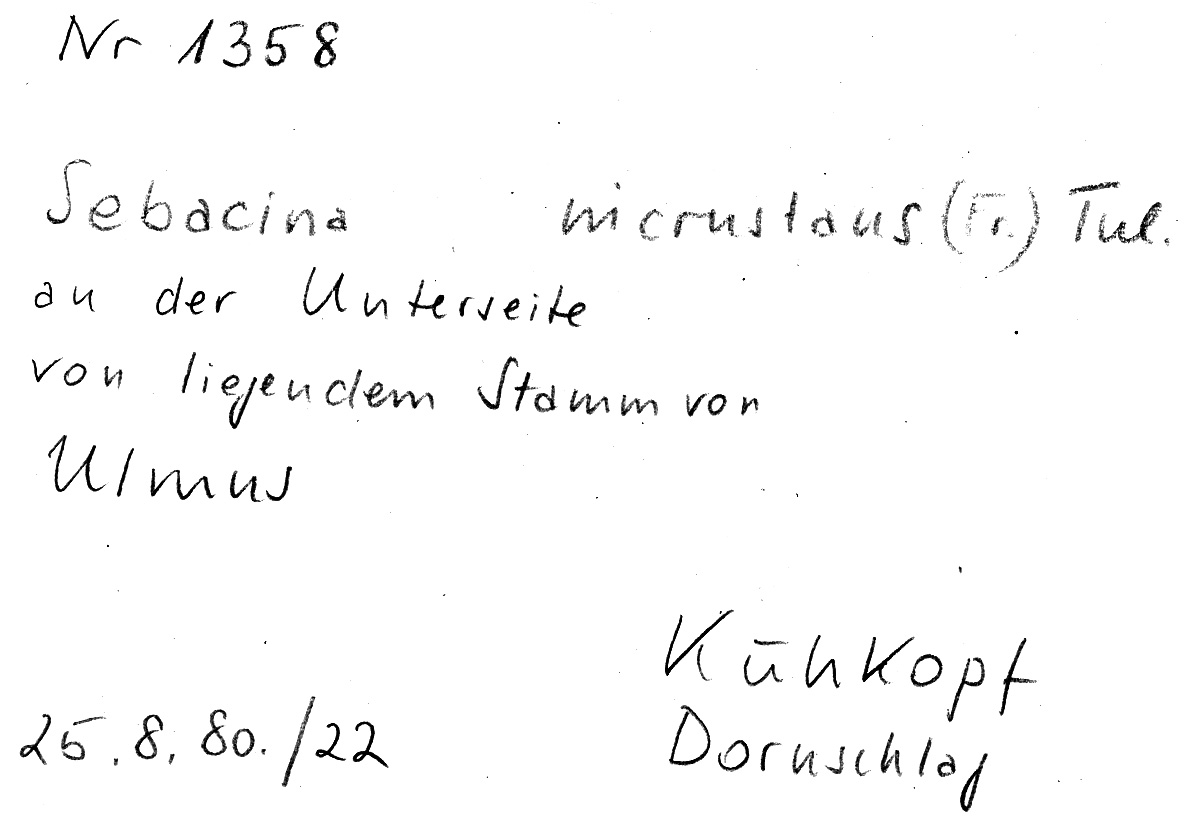 Nr 1358
Sebacina incrustans (Fr.) Tul.
an der Unterseite
von liegendem Stamm von
Ulmus
Kühkopf
25.8.80./22 Dornschlag